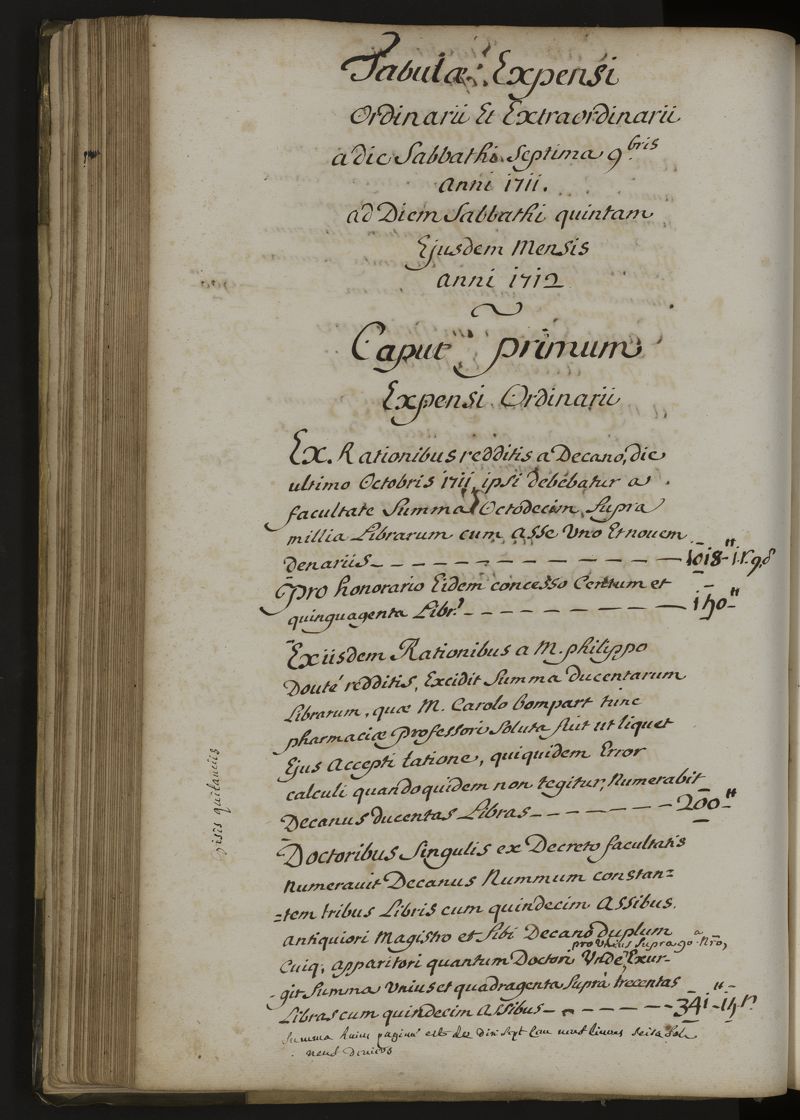 Tabulæ Expensi
Ordinarii Et Extraordinarii
a die Sabbathi Septima 9bris
anni 1711.
ad Diem Sabbathi quintam
Ejusdem Mensis
anni 1712
Caput primum
Expensi Ordinarii
Ex Rationibus redditis a Decano, die
ultimo Octobris 1711, ipsi debebatur a
facultate Summa Octodecim Supra
millia Librarum cum asse Uno Et novem
denariis - - - - - - - - - - - - - 1018" 1s. 9d
Pro honorario Eidem concesso Centum et
quinquagenta Libr. - - - - - - - - - 150"
Ex iisdem Rationibus a M. philippo
Douté redditis, Excidit Summa ducentarum
Librarum, quæ M. Carolo bompart tunc
pharmaciæ professori Soluta fuit ut liquet
Ejus Accepti latione, qui quidem Error
calculi quandoquidem non tegitur, Numerabit
Decanus ducentas Libras - - - - - - - 200"
visis quitanciis
Doctoribus Singulis ex Decreto facultatis
Numeravit Decanus Nummum constan=
=tem tribus Libris cum quindecim Assibus.
antiquiori Magistro et Sibi Decano duplum
pro Unius Supra 90.a Nro,
Cuiq; apparitori quantum Doctori Unde Exur-
-git Summa Unius et quadragenta Supra trecentas
Libras cum quindecim Assibus - - - - - - 341" 15s.
Summa huius paginæ est de dix sept cent neuf livres seize sols
neuf deniers